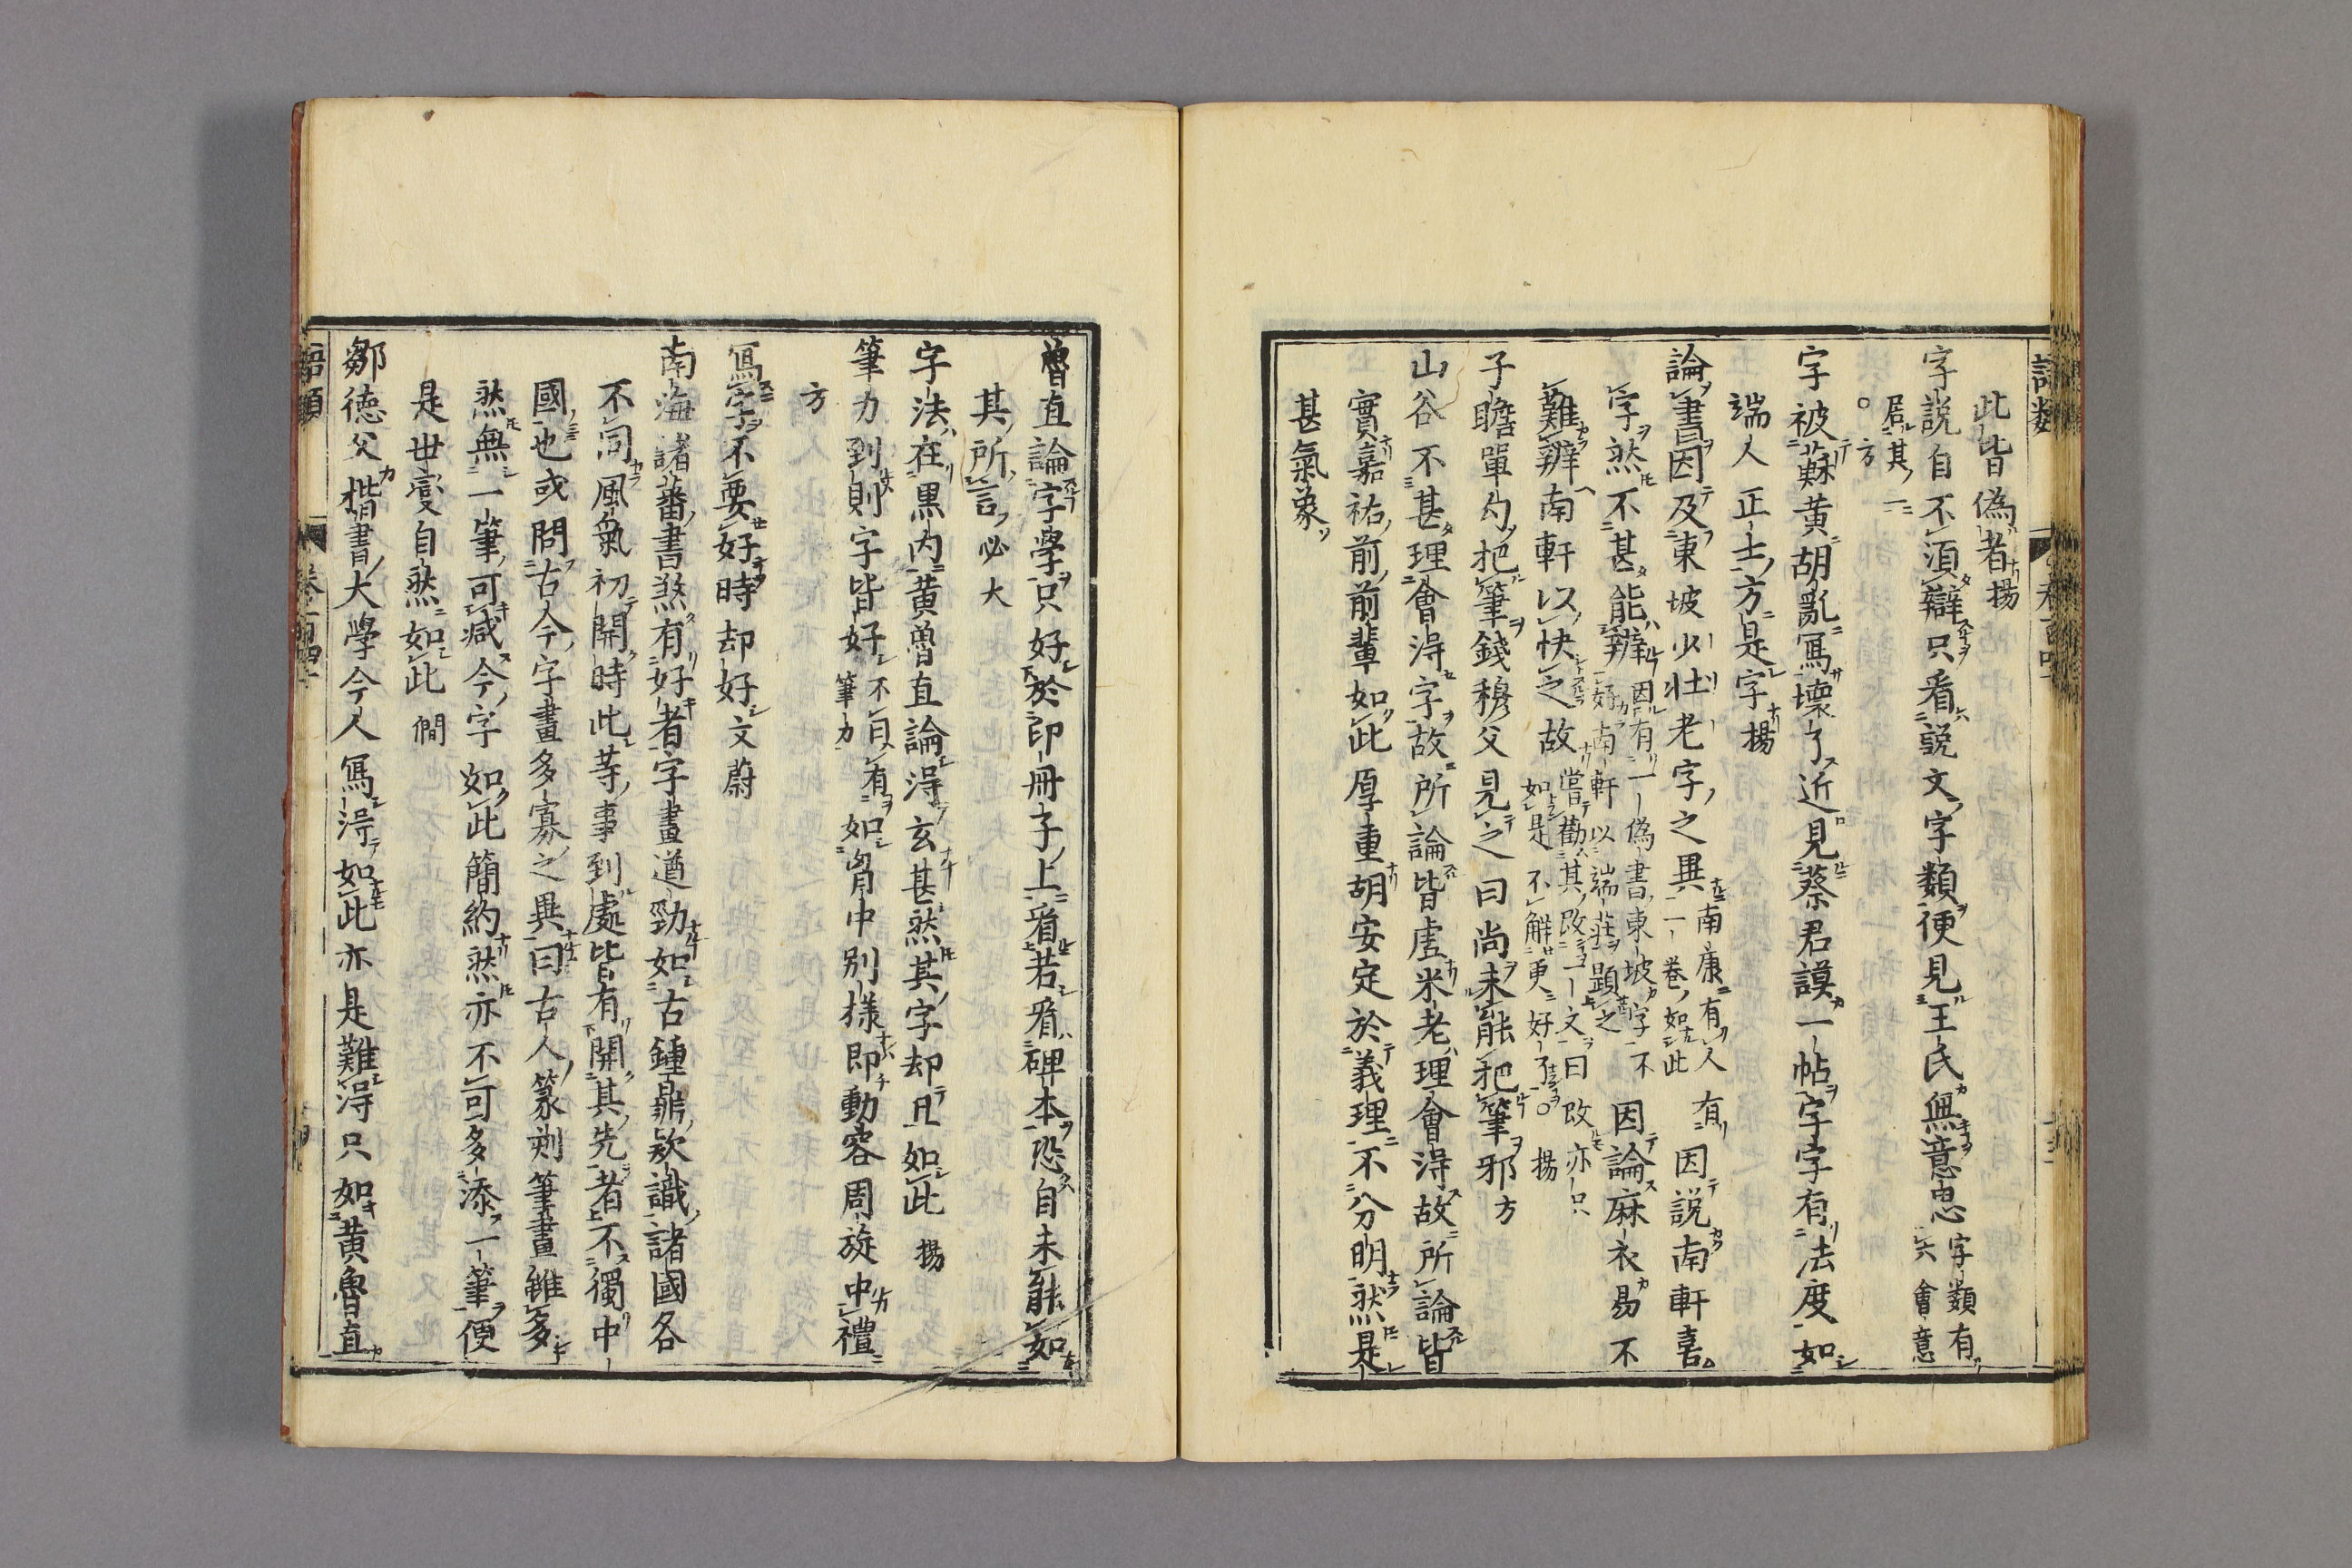 此皆偽者揚
字說自不須辯只看說文字類便見王氏無意思字類有六會意
居其一
○方
字被蘇黃胡亂寫壞了近見蔡君謨一帖字字有法度如
端人正士方是字揚
論書因及東坡少壯老字之異南康有人有一卷如此因說南軒喜
字然不甚能辨因有一偽書東坡字不好南軒以端莊題之因論麻衣易不
難辨南軒以快之故嘗勸其改一文曰改亦只如是不解更好了○揚
子瞻單勾把筆錢穆父見之曰尚未能把筆邪方
山谷不甚理會得字故所論皆虛米老理會得故所論皆
實嘉祐前前輩如此厚重胡安定於義理不分明然是
甚氣象
魯直論字學只好於印冊子上看若看碑本恐自未能如
其所言必大
字法在黑內黃魯直論得玄甚然其字却且如此揚
筆力到則字皆好不自有筆力如胷中別樣即動容周旋中禮
方
寫字不要好時却好文蔚
南海諸蕃書煞有好者字畫遒勁如古鍾鼎欵識諸國各
不同風氣初開時此等事到處皆有開其先者不獨中
國也或問古今字畫多寡之異曰古人篆刻筆畫雖多
然無一筆可減今字如此簡約然亦不可多添一筆便
是世變自然如此僩
鄒德父楷書大學今人寫得如此亦是難得只如黃魯直
語類 卷一百四十